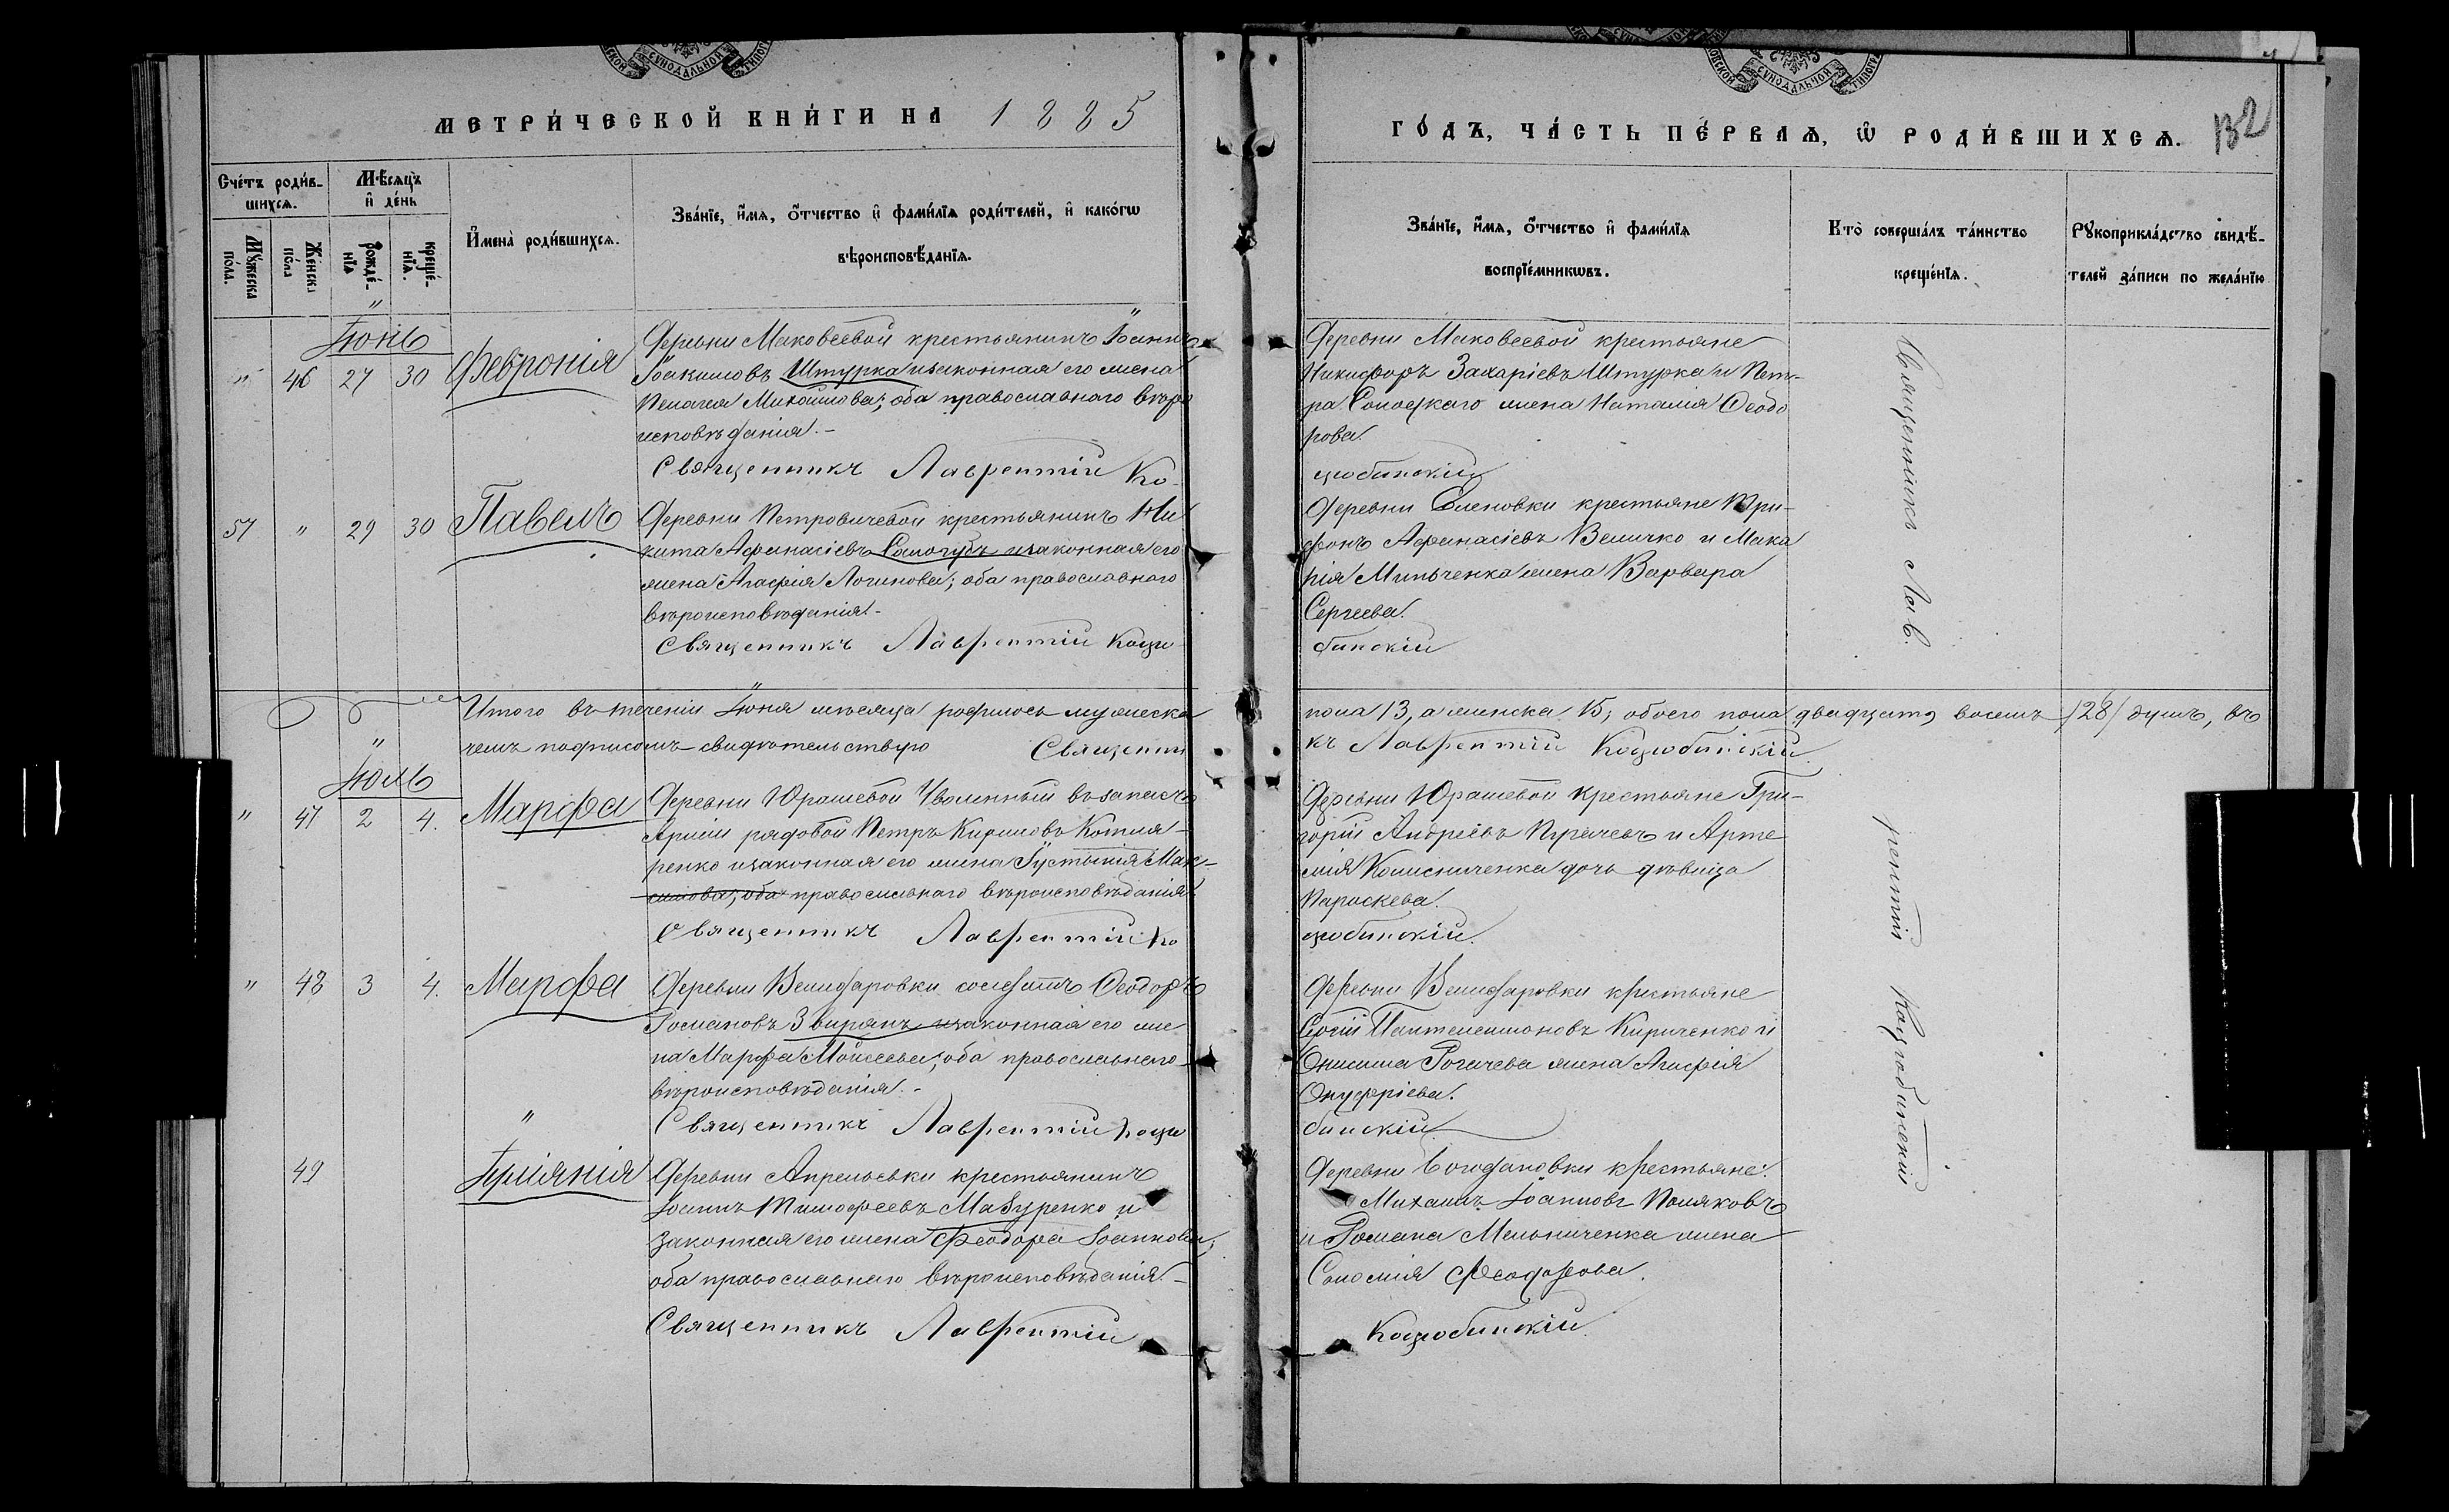 МЕТРИ́ЧЕСКОЙ КНИ́ГИ НА 1885
ГО́ДЪ, ЧА́СТЬ ПЕ́РВАѦ, Ѡ РОДИ́ВШИХСѦ.
132
Сче́тъ роди́в-
шихсѧ.
Мѣ́сѧцъ
и де́нь
Мꙋжеска
по́ла.
Же́нска
по́ла
рожде́-
нїѧ
креще́-
нїѧ.
И҆мена̀ роди́вшихсѧ.
Зва́нїе, и҆́мѧ, ѻ҆́тчество и҆ фами́лїѧ роди́телей, и҆ како́гѡ
вѣроисповѣ́данїѧ.
Зва́нїе, и҆́мѧ, ѻ҆́тчество и҆ фами́лїѧ
воспрїе́мникѡвъ.
Кто̀ соверша́лъ та́инство
креще́нїѧ.
Рꙋкоприкла́дство свидѣ́-
телей за́писи по жела́нїю
Іюнь
46 27 30 Февронія
Деревни Маковеевой крестьянинъ Іоаннъ
Іоакимовъ Штурка и законная его жена
Пелагея Михайлова; оба православнаго вѣро
исповѣданія.-
Священникъ Лаврентій Ко-
Деревни Маковеевой крестьяне
Никифоръ Захаріевъ Штурка и Пет-
ра жена Наталія Ѳеодо
рова.
цюбинскій
57 " 29 30 Павелъ
Деревни Петровичевой крестьянинъ Ни
кита Аѳанасіевъ Сологубъ и законная его
жена Агафія Логинова; оба православнаго
вѣроисповѣданія.-
Священникъ Лаврентій Коцю
Деревни Еленовки крестьяне Три-
фонъ Афанасіевъ Величко и Мака
рія Мильченка жена Варвара
Сергеева.
бинскій
Итого въ теченіи Іюня мѣсяца родилось мужеска
пола 13, а женска 15, обоего пола двадцать восемь /28/ душъ, въ
чемъ подписомъ свидѣтельствую Священни
къ Лаврентій Коцюбинскій.
Іюль
" 47 2 4. Марфа
Деревни Юрашевой Уволенный въ запасъ
Арміи рядовой Петръ Кириловъ Котля-
ренко и законная его жена Іустинія Мак-
симова; оба православнаго вѣроисповѣданія
Священникъ Лаврентій Ко
Деревни Юрашевой крестьяне Гри-
горій Андреевъ и Арте
мія Колисниченка дочь дѣвица
Параскева.
цюбинскій.
" 48 3 4. Марфа
Деревни Велидаровки солдатъ Ѳеодоръ
Романовъ Звирянъ и законная его же
на Марфа Моисеева; оба православнаго
вѣроисповѣданія.-
Священникъ Лаврентій Коцю
Деревни Велидаровки крестьяне
Пантелеимоновъ Кириченко и
Онисима Рогачева жена Агафія
Онуфріева.
бинскій
49 Іуліянія
Деревни Апрельевки крестьянинъ
Іоаннъ Тимофеевъ Мазуренко и
законная его жена Феодора Іоаннова;
оба православнаго вѣроисповѣданія.-
Священникъ Лаврентій
Деревни Богодановки крестьяне:
Михаилъ Іоанновъ Поляковъ
и Романа Мельниченка жена
Соломія Феодорова.
Коцюбинскій.
Священникъ Лав.
рентій Коцюбинскій